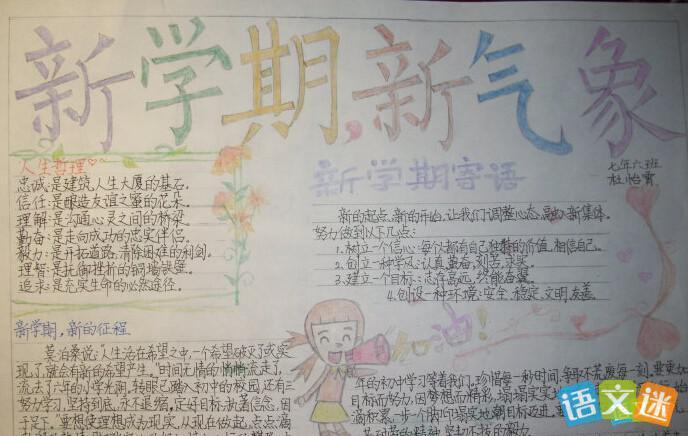 新学期,新气象
人生哲理
忠诚:是建筑人生大厦的基石。
信任:是酿造友谊之蜜的花朵。
理解:是沟通心灵之间的桥梁。
勤奋:是走向成功的忠实伴侣。
毅力:是开拓道路,清除困难的利剑。
理智:是抵御挫折的铜墙铁壁。
追求:是充实生命的必然途径。
新学期寄语
七年六班
杜怡霄
新的起点、新的开始,让我们调整心态,融入新集体。
努力做到以下几点:
1.树立一个信心:每个人都有自己独特的价值,相信自己。
2.创立一种学风:认真,勤奋,刻苦,求实。
3.建立一个目标:志存高远,终能奋翼。
4.创设一种环境:安全、稳定、文明、友善。
加油!
新学期,新的征程
莫泊桑说:“人生活在希望之中,一个希望破灭了或实
现了,就会有新的希望产生。”时间无情的悄悄流走了,
流去了六年的小学光阴,转眼已踏入初中的校园,还有三
努力学习,坚持到底,永不退缩,定好目标,执著信念,因
于足下。”要想使理想成为现实,从现在做起,点点滴
年的初中学习等着我们。珍惜每一种时间,
目标而努力,因梦想而精彩,
滴积累,一步一个脚印,塌塌实实地朝目标迈进。
语文迷